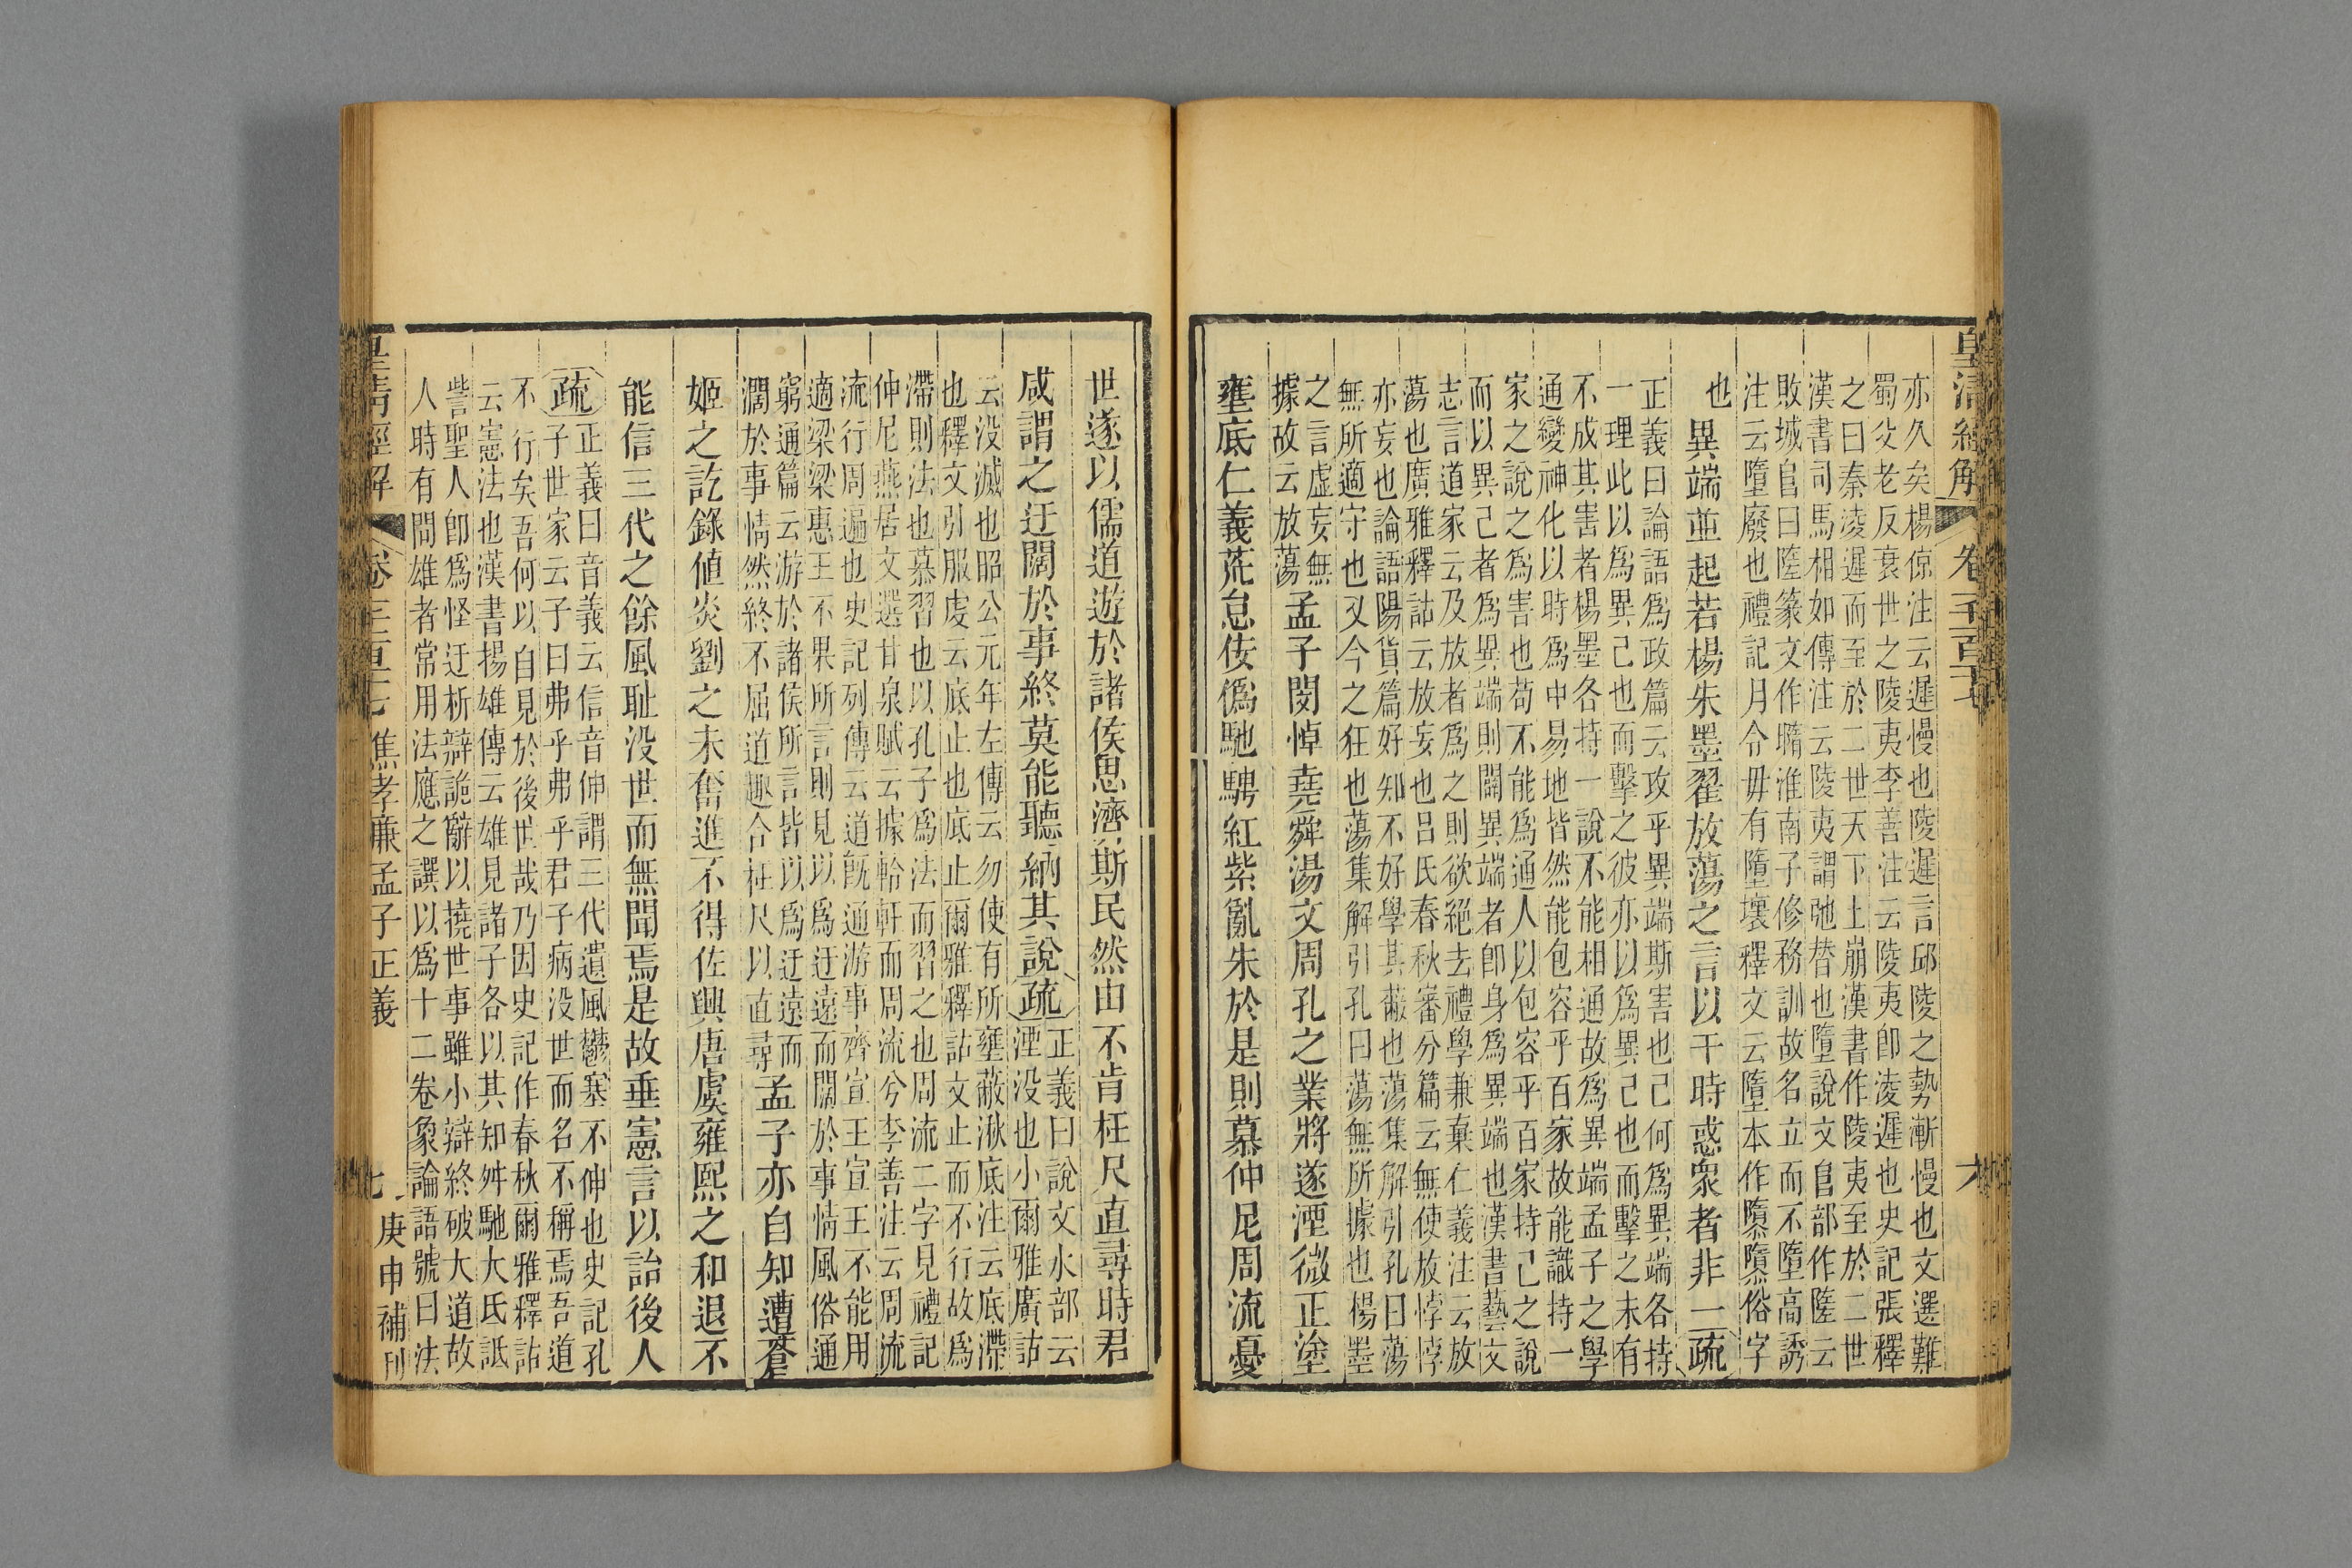 皇清經解
卷一千一百十七
六
亦久矣楊倞注云遲慢也陵遲言邱陵之勢漸慢也文選難
蜀父老反衰世之陵夷李善注云陵夷卽淩遲也史記張釋
之曰秦淩遲而至於二世天下土崩漢書作陵夷至於二世
漢書司馬相如傳注云陵夷謂弛替也墮說文𨸏部作隓云
敗城𨸏曰隓篆文作墮淮南子修務訓故名立而不墮高誘
注云墮廢也禮記月令毋有墮壞釋文云墮本作隳隳俗字
也 異端並起若楊朱墨翟放蕩之言以干時惑衆者非一疏
正義曰論語爲政篇云攻乎異端斯害也己何爲異端各持
一理此以爲異己也而擊之彼亦以爲異己也而擊之未有
不成其害者楊墨各持一說不能相通故爲異端孟子之學
通變神化以時爲中易地皆然能包容乎百家故能識持一
家之說之爲害也苟不能爲通人以包容乎百家持己之說
而以異己者爲異端則闢異端者卽身爲異端也漢書藝文
志言道家云及放者爲之則欲絕去禮學兼棄仁義注云放
蕩也廣雅釋詁云放妄也呂氏春秋審分篇云無使放悖悖
亦妄也論語陽貨篇好知不好學其蔽也蕩集解引孔曰蕩
無所適守也又今之狂也蕩集解引孔曰蕩無所據也楊墨
之言虛妄無
據故云放蕩 孟子閔悼堯舜湯文周孔之業將遂湮微正塗
壅底仁義荒怠佞僞馳騁紅紫亂朱於是則慕仲尼周流憂
世遂以儒道遊於諸侯思濟斯民然由不肯枉尺直尋時君
咸謂之迂闊於事終莫能聽納其說疏 正義曰說文水部云
湮没也小爾雅廣詁
云没滅也昭公元年左傳云勿使有所壅蔽湫底注云底滯
也釋文引服虔云底止也底止爾雅釋詁文止而不行故爲
滯則法也慕習也以孔子爲法而習之也周流二字見禮記
仲尼燕居文選甘泉賦云據軨軒而周流兮李善注云周流
流行周遍也史記列傳云道旣通游事齊宣王宣王不能用
適梁梁惠王不果所言則見以爲迂遠而闊於事情風俗通
窮通篇云游於諸侯所言皆以爲迂遠而
濶於事情然終不屈道趣合枉尺以直尋 孟子亦自知遭蒼
姬之訖錄値炎劉之未奮進不得佐興唐虞雍熙之和退不
能信三代之餘風耻没世而無聞焉是故垂憲言以詒後人
疏 正義曰音義云信音伸謂三代遺風鬱塞不伸也史記孔
子世家云子曰弗乎弗乎君子病没世而名不稱焉吾道
不行矣吾何以自見於後世哉乃因史記作春秋爾雅釋詁
云憲法也漢書揚雄傳云雄見諸子各以其知舛馳大氐詆
訾聖人卽爲怪迂析辯詭辭以撓世事雖小辯終破大道故
人時有問雄者常用法應之譔以爲十二卷象論語號曰法
皇清經解
焦孝廉孟子正義
七
庚申補刊